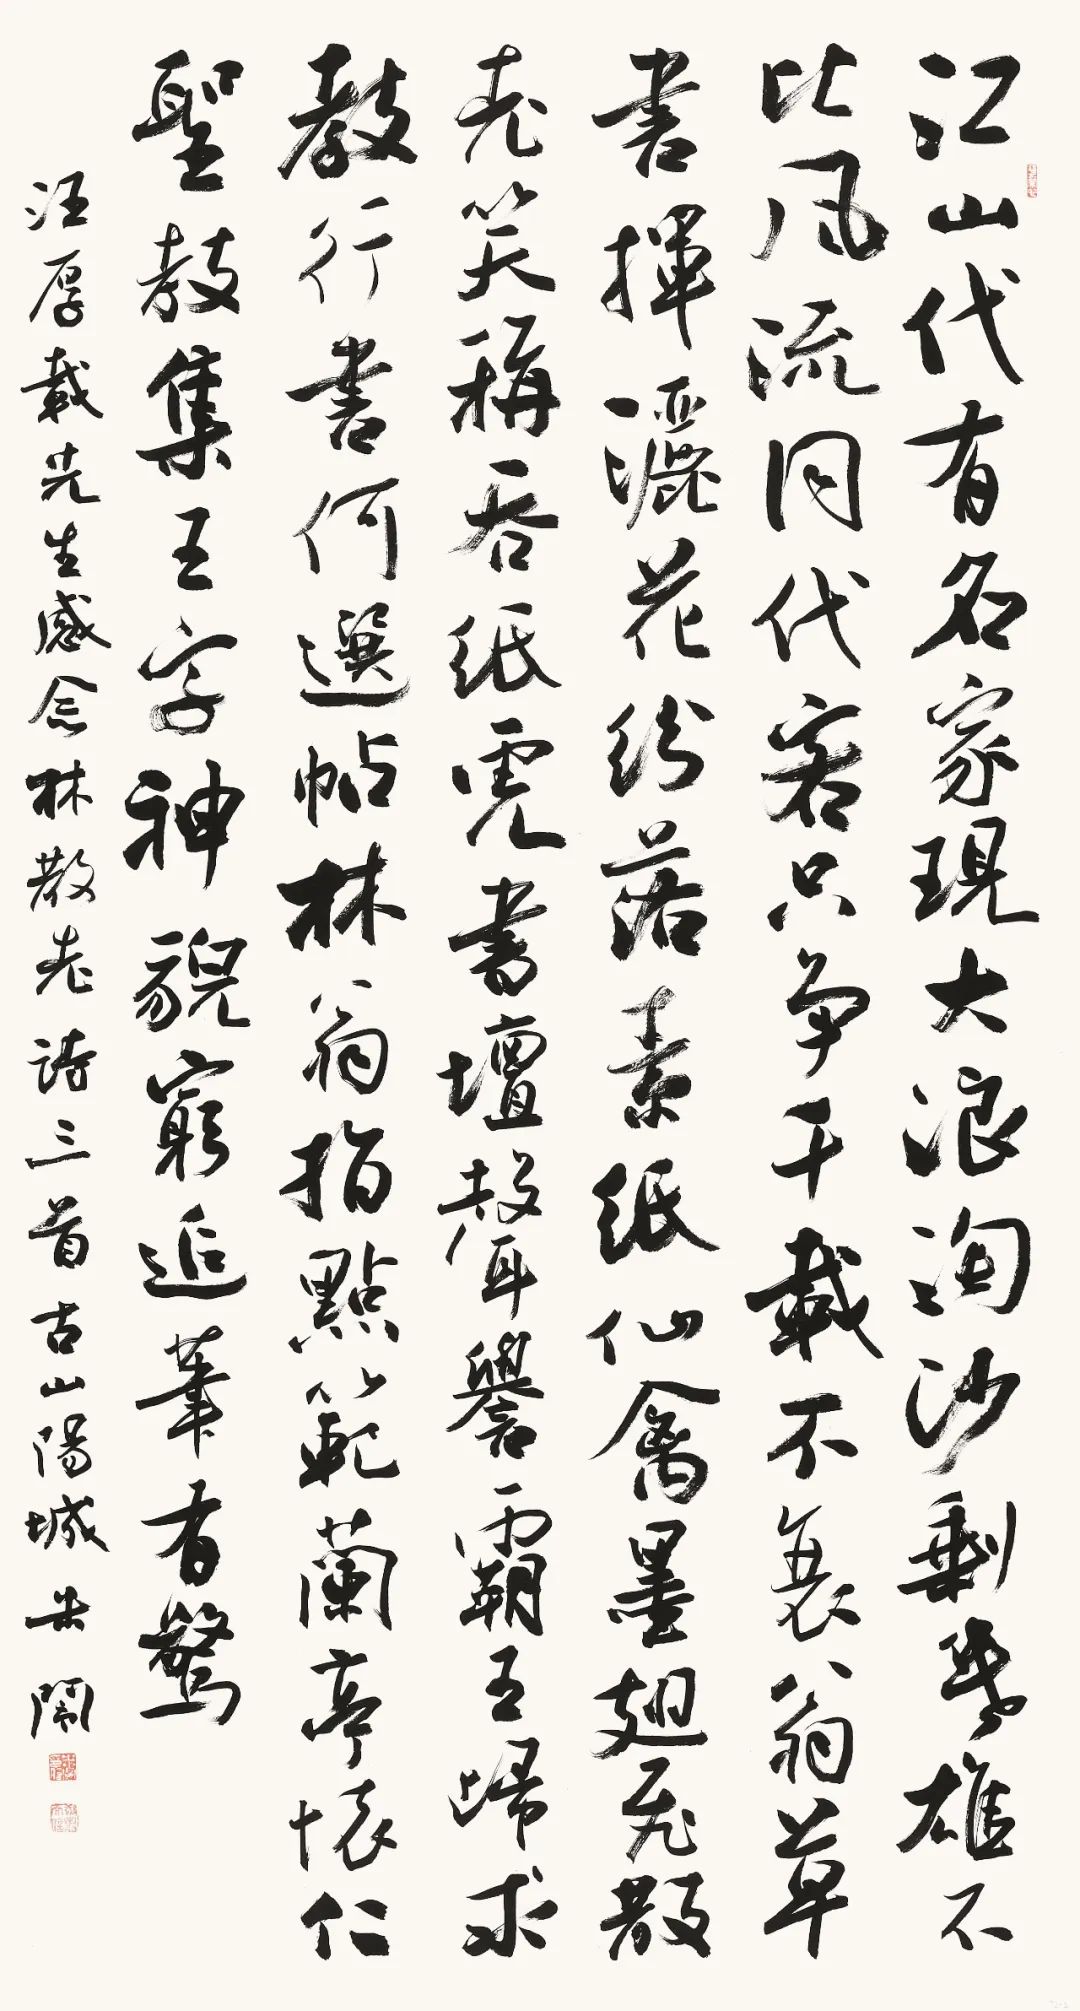 江山代有名家現大浪淘沙剩幾雄不
比風流同代客只争千載不衰翁草
書揮灑花紛落素紙仙禽墨翅飛散
老笑稱吞紙虎書壇聲譽霸王歸求
教行書何選帖林翁指點範蘭亭懷仁
聖教集王字神貌窮追筆有驚
汪厚載先生感念林散老詩三首古山陽城米鬧